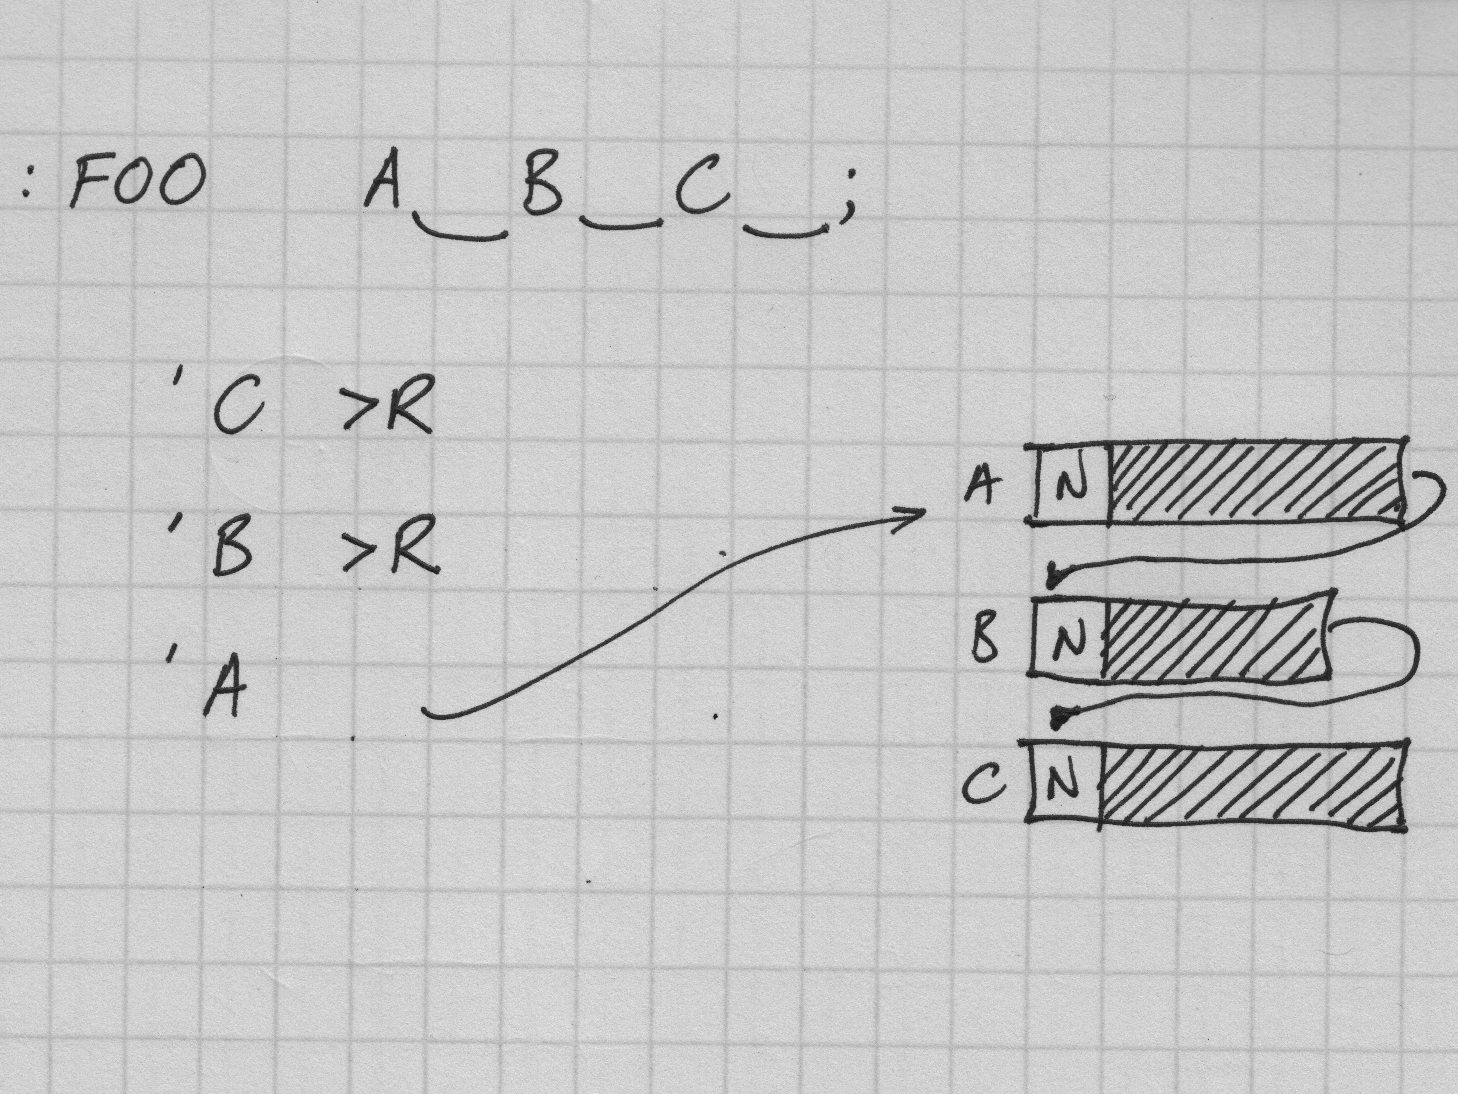 : FOO A B C ;
' C >R
' B >R
' A
A N
B N
C N